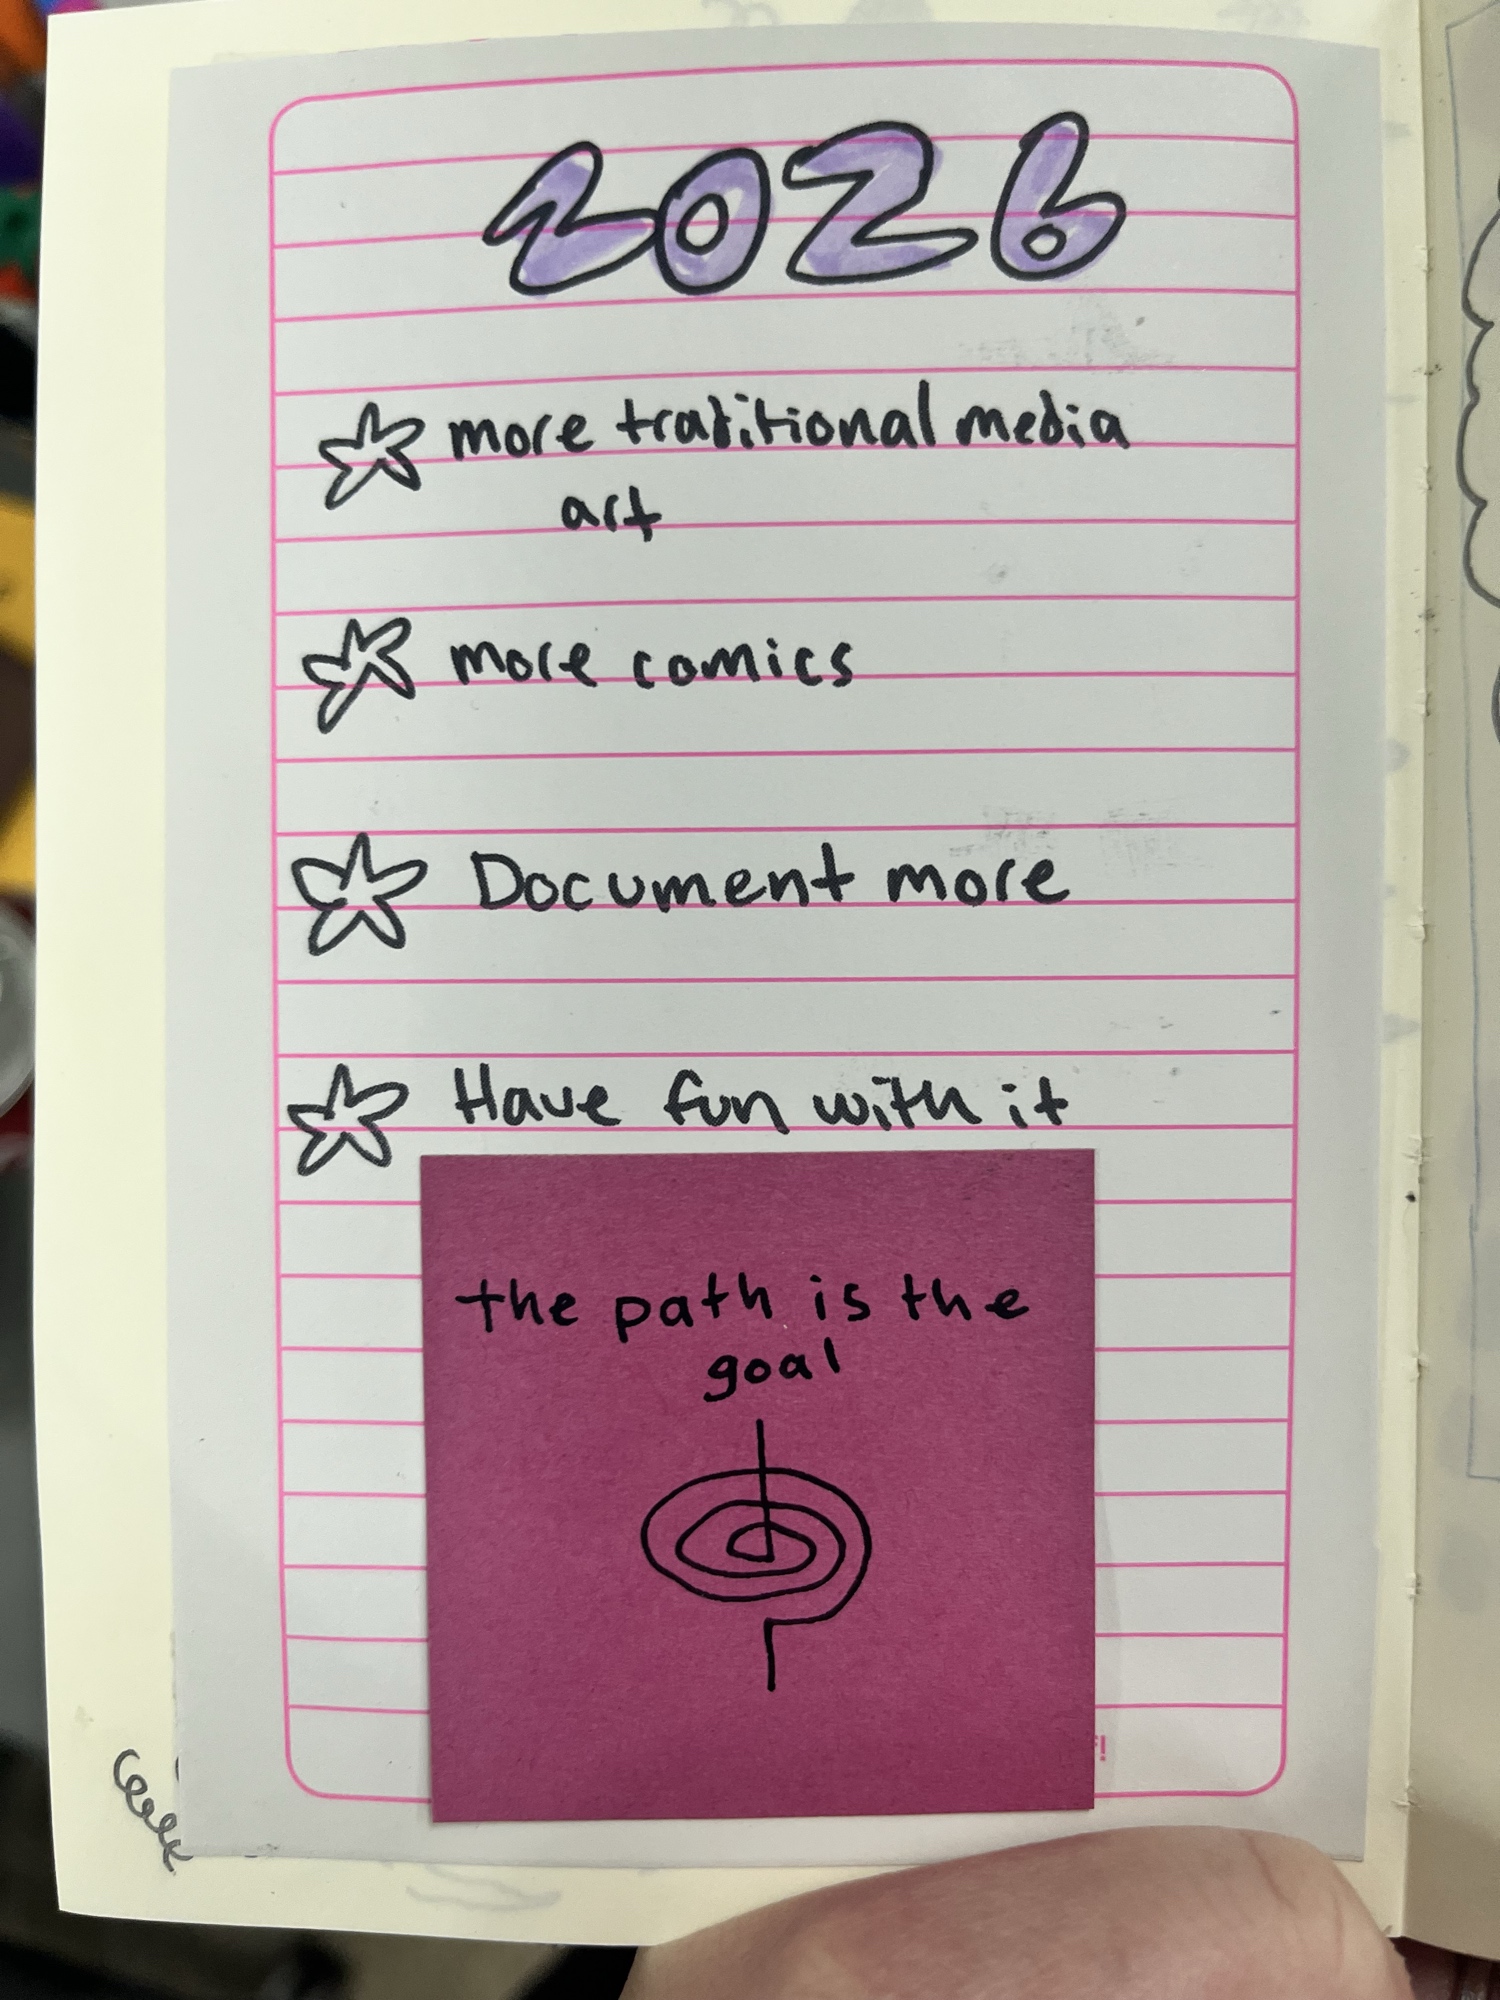 2026
more traditional media
art
more comics
Document more
Have fun with it
the path is the
goal